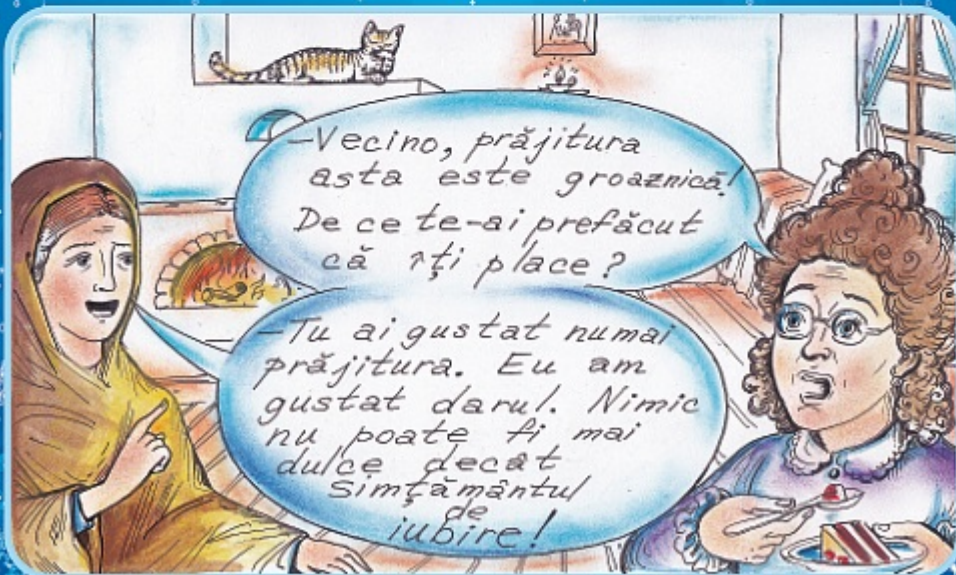 –Vecino, prăjitura
asta este groaznică!
De ce te-ai prefăcut
că îţi place?
–Tu ai gustat numai
prăjitura. Eu am
gustat darul. Nimic
nu poate fi mai
dulce decât
simţământul
de
iubire!